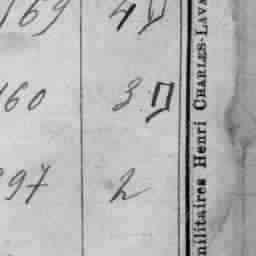 169 4
160 3
97 2
militaires Henri CHARLES-LAVA